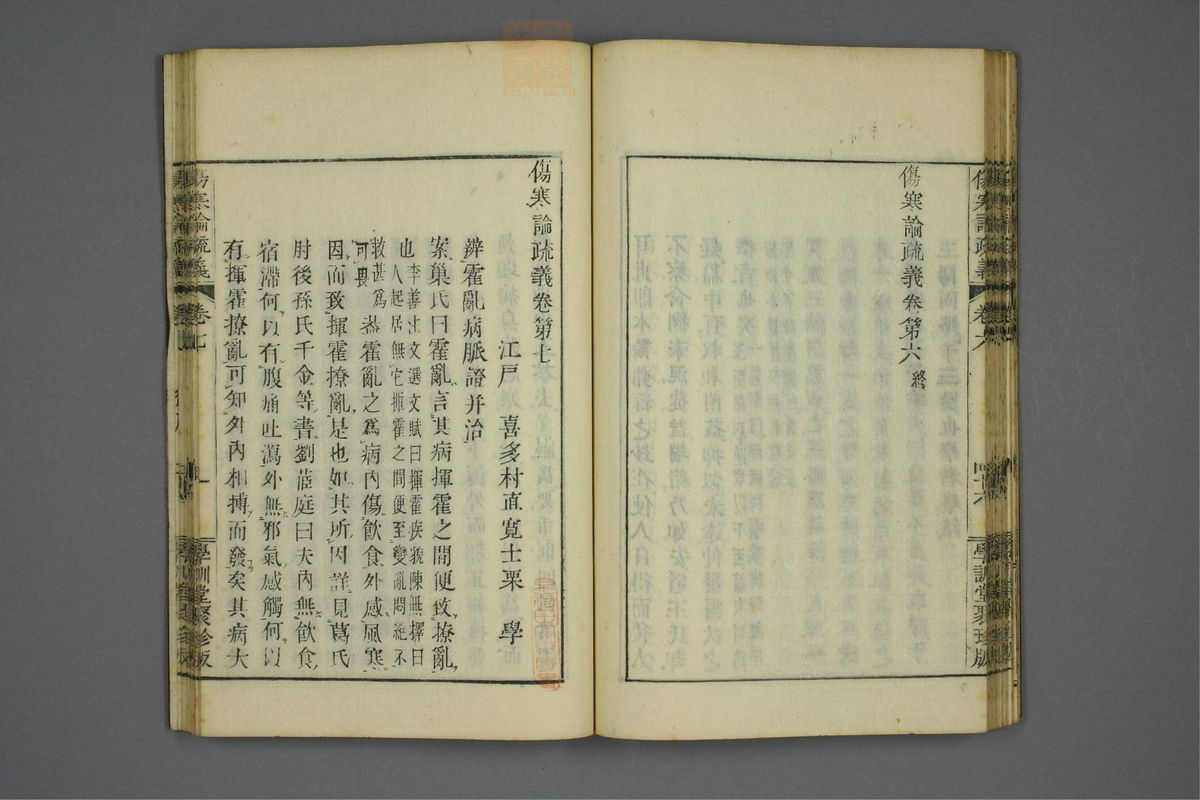 傷寒論疏義卷第六終
傷寒論疏義
卷六
四十六
學訓堂聚珍版
傷寒論疏義卷第七
江戶 喜多村直寬士栗 學
辨霍亂病脈證并治
案巢氏曰霍亂言其病揮霍之間便致撩亂
也李善注文選文賦曰揮霍疾貌陳無擇曰
人起居無它揮霍之間便至變亂悶絕不
救甚爲
可畏
葢霍亂之爲病內傷飮食外感風寒
因而致揮霍撩亂是也如其所因詳見葛氏
肘後孫氏千金等書劉茝庭曰夫內無飮食
宿滯何以有腹痛吐瀉外無邪氣感觸何以
有揮霍撩亂可知外內相搏而發矣其病大
傷寒論疏義
卷七
一
學訓堂聚珍版